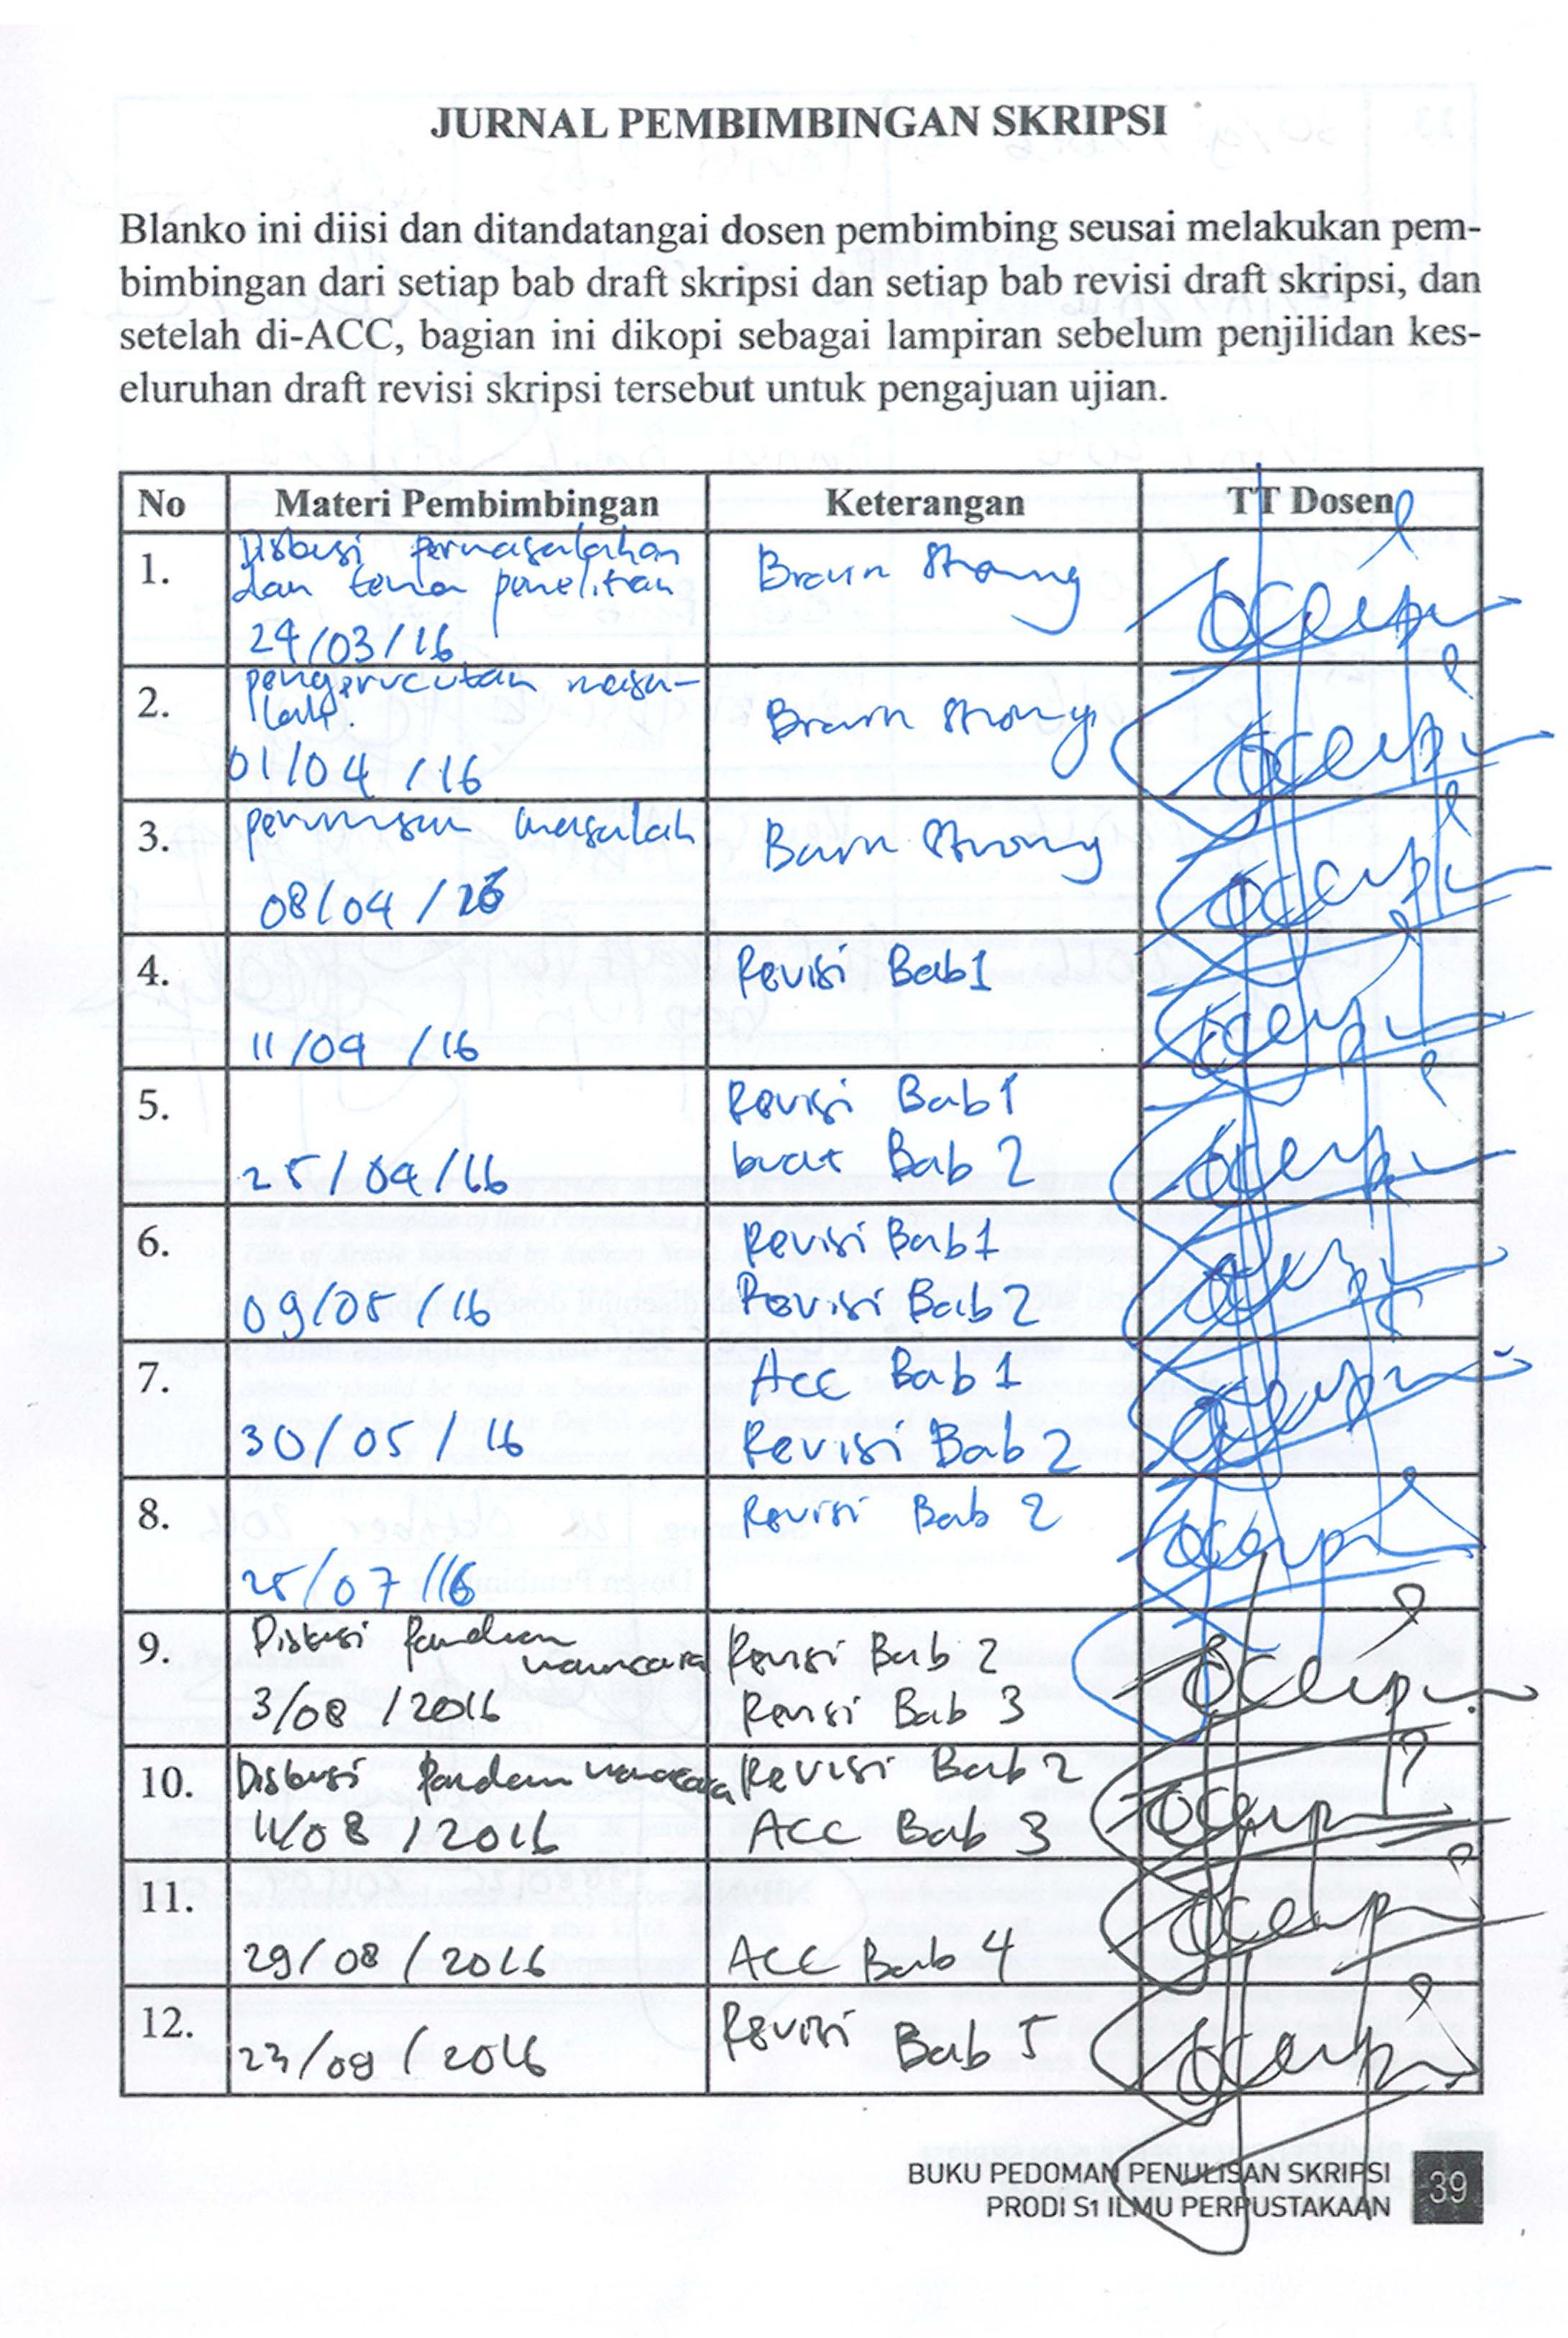 JURNAL PEMBIMBINGAN SKRIPSI
Blanko ini diisi dan ditandatangai dosen pembimbing seusai melakukan pem-
bimbingan dari setiap bab draft skripsi dan setiap bab revisi draft skripsi, dan
setelah di-ACC, bagian ini dikopi sebagai lampiran sebelum penjilidan kes-
eluruhan draft revisi skripsi tersebut untuk pengajuan ujian.
No Materi Pembimbingan Keterangan TT Dosen
1. Diskusi permasalahan
dan tema penelitian
24/03/16
Brain Strong
2. pengerucutan masa-
lah.
01/04/16
Brain Strong
3. perumusan masalah
08/04/16
Brain Strong
4. Revisi Bab 1
11/04/16
5. Revisi Bab 1
buat Bab 2
25/04/16
6. Revisi Bab 1
09/05/16 Revisi Bab 2
7. Acc Bab 1
30/05/16 Revisi Bab 2
8. Revisi Bab 2
25/07/16
9. Diskusi Panduan
wawancara Revisi Bab 2
3/08/2016 Revisi Bab 3
10. Diskusi Panduan wawancara Revisi Bab 2
11/08/2016 ACC Bab 3
11.
29/08/2016 ACC Bab 4
12. Revisi Bab 5
23/09/2016
BUKU PEDOMAN PENULISAN SKRIPSI
PRODI S1 ILMU PERPUSTAKAAN
39